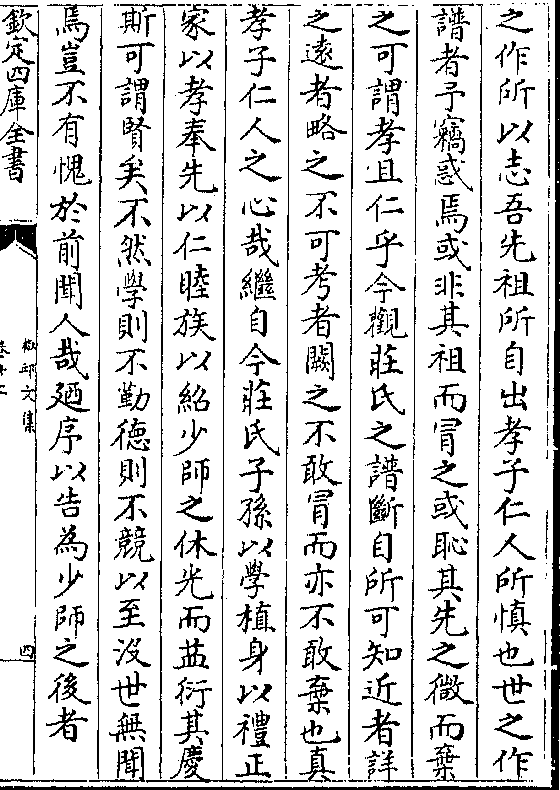 之作所以志吾先祖所自出孝子仁人所慎也世之作
譜者予竊惑焉或非其祖而冒之或恥其先之微而棄
之可謂孝且仁乎今觀莊氏之譜斷自所可知近者詳
之遠者略之不可考者闕之不敢冒而亦不敢棄也真
孝子仁人之心哉繼自今莊氏子孫以學植身以禮正
家以孝奉先以仁睦族以紹少師之休光而益衍其慶
斯可謂賢矣不然學則不勤德則不競以至没世無聞
焉豈不有愧於前聞人哉廼序以告為少師之後者
欽定四庫全書
文集
四